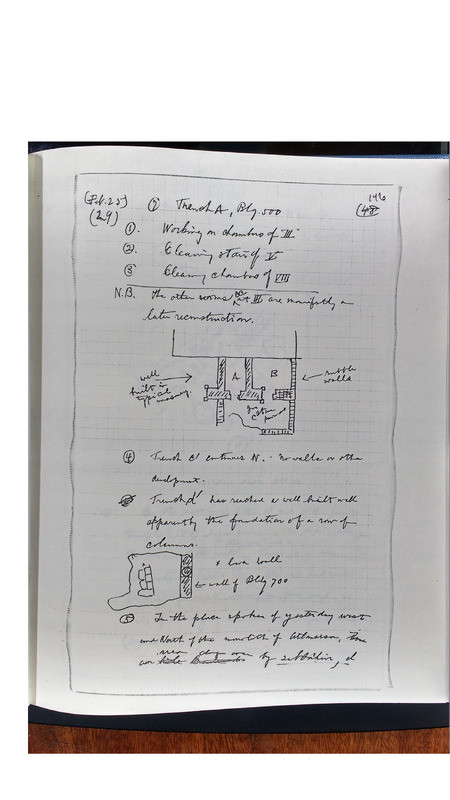 (Feb. 25)
(29)
① Trench A, Bldg. 500
146
①. Working on chambers of III
②. Cleaning stairs of V
③ Cleaning chambers of VIII
N.B. The other rooms of III are manifestly a
later reconstruction.
well
built in
typical
masonry.
A
B
rubble
walls
④ Trench C' continues N. no walls or other
development.
Trench d' has reached a well built wall
apparently the foundation of a row of
columns.
x low wall
← wall of Bldg 700
⑤ In the place spoken of yesterday west
and North of the monolith of
area by